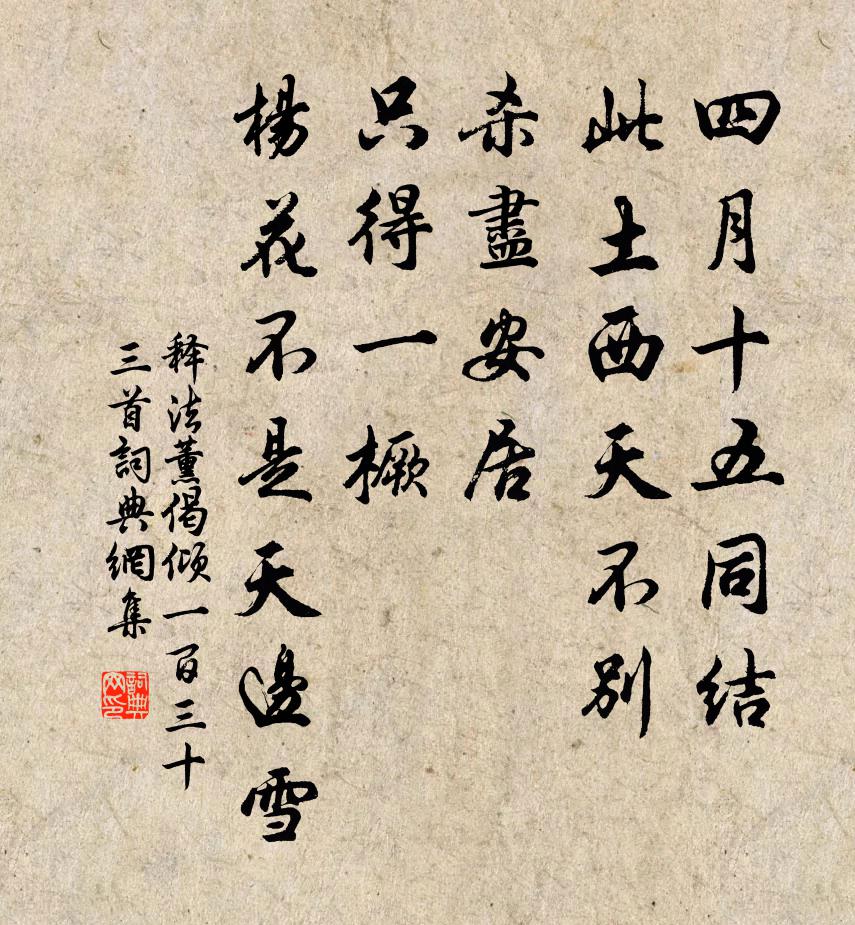 四月十五同结
此土西天不别
杀盡安居
只得一橛
楊花不是天邊雪
释法薰偈倾一百三十
三首詞典網集
詞典
网印